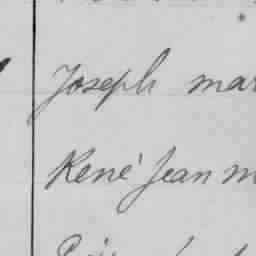 Joseph mar
René Jean m